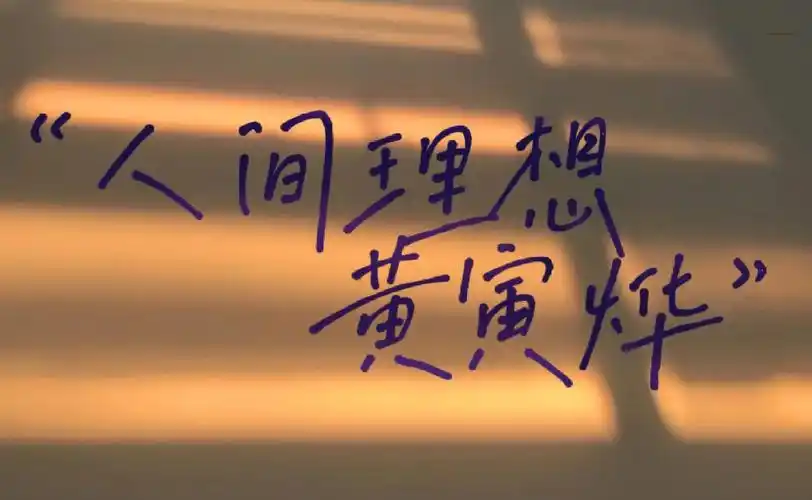 “人间理想
黄寅烨”